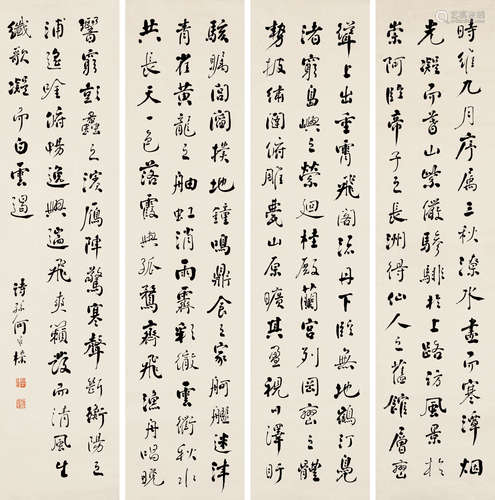 時維九月序屬三秋潦水盡而寒潭烟
光凝而暮山紫儼驂騑於上路訪風景於
崇阿臨帝子之長洲得仙人之舊館層巒
聳上出重霄飛閣流丹下臨無地鶴汀鳧
渚窮島嶼之縈迴桂殿蘭宮列岡巒之體
勢披繡闥俯雕甍山原曠其盈視川澤盱
駭矚閭閻撲地鐘鳴鼎食之家舸艦迷津
青雀黃龍之舳虹消雨霽彩徹雲衢秋水
共長天一色落霞與孤鶩齊飛漁舟唱晚
響窮彭蠡之濱雁陣驚寒聲斷衡陽之
浦遙吟俯暢逸興遄飛爽籟發而清風生
纖歌凝而白雲遏
詩孫何維樸